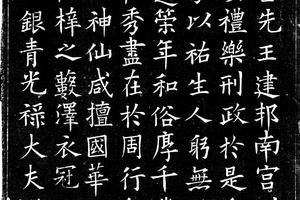 先王建邦南宮
禮樂刑政於是
以祐生人躬無
年和俗厚千
秀盡在於周行
神仙咸擅國華
梓之藪澤衣冠
銀青光祿大夫